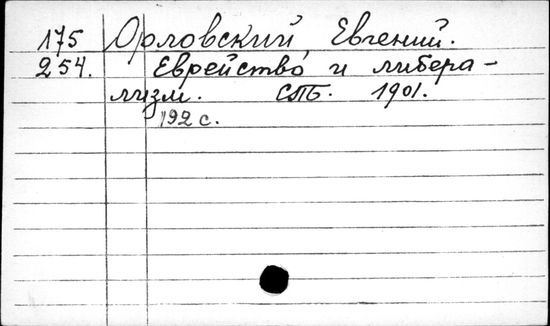 175 Орловский, Евгений.
254. Еврейство и либера-
лизм. СПБ. 1901.
192 с.